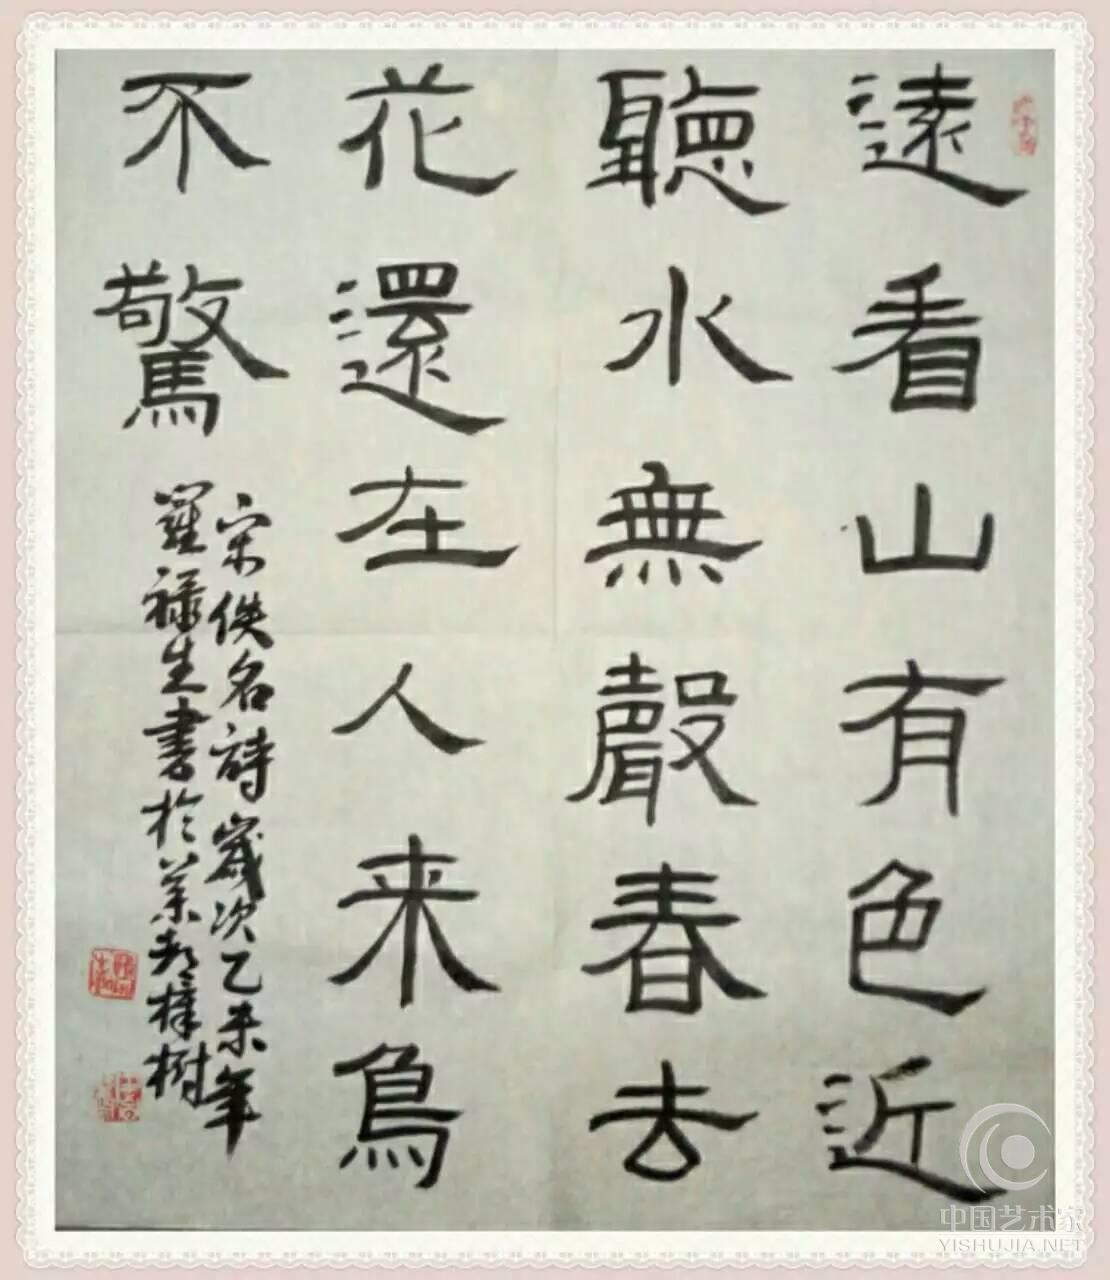 遠看山有色近
聽水無聲春去
花還在人来鳥
不驚
宋佚名詩歲次乙未年
羅禄生書於藥都樟樹
中国艺术家
YISHUJIA.NET